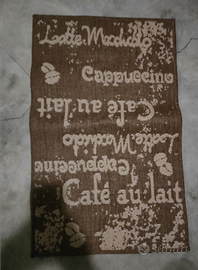 Latte Macchiato
Cappuccino
Café au lait
Latte Macchiato
Cappuccino
Café au lait